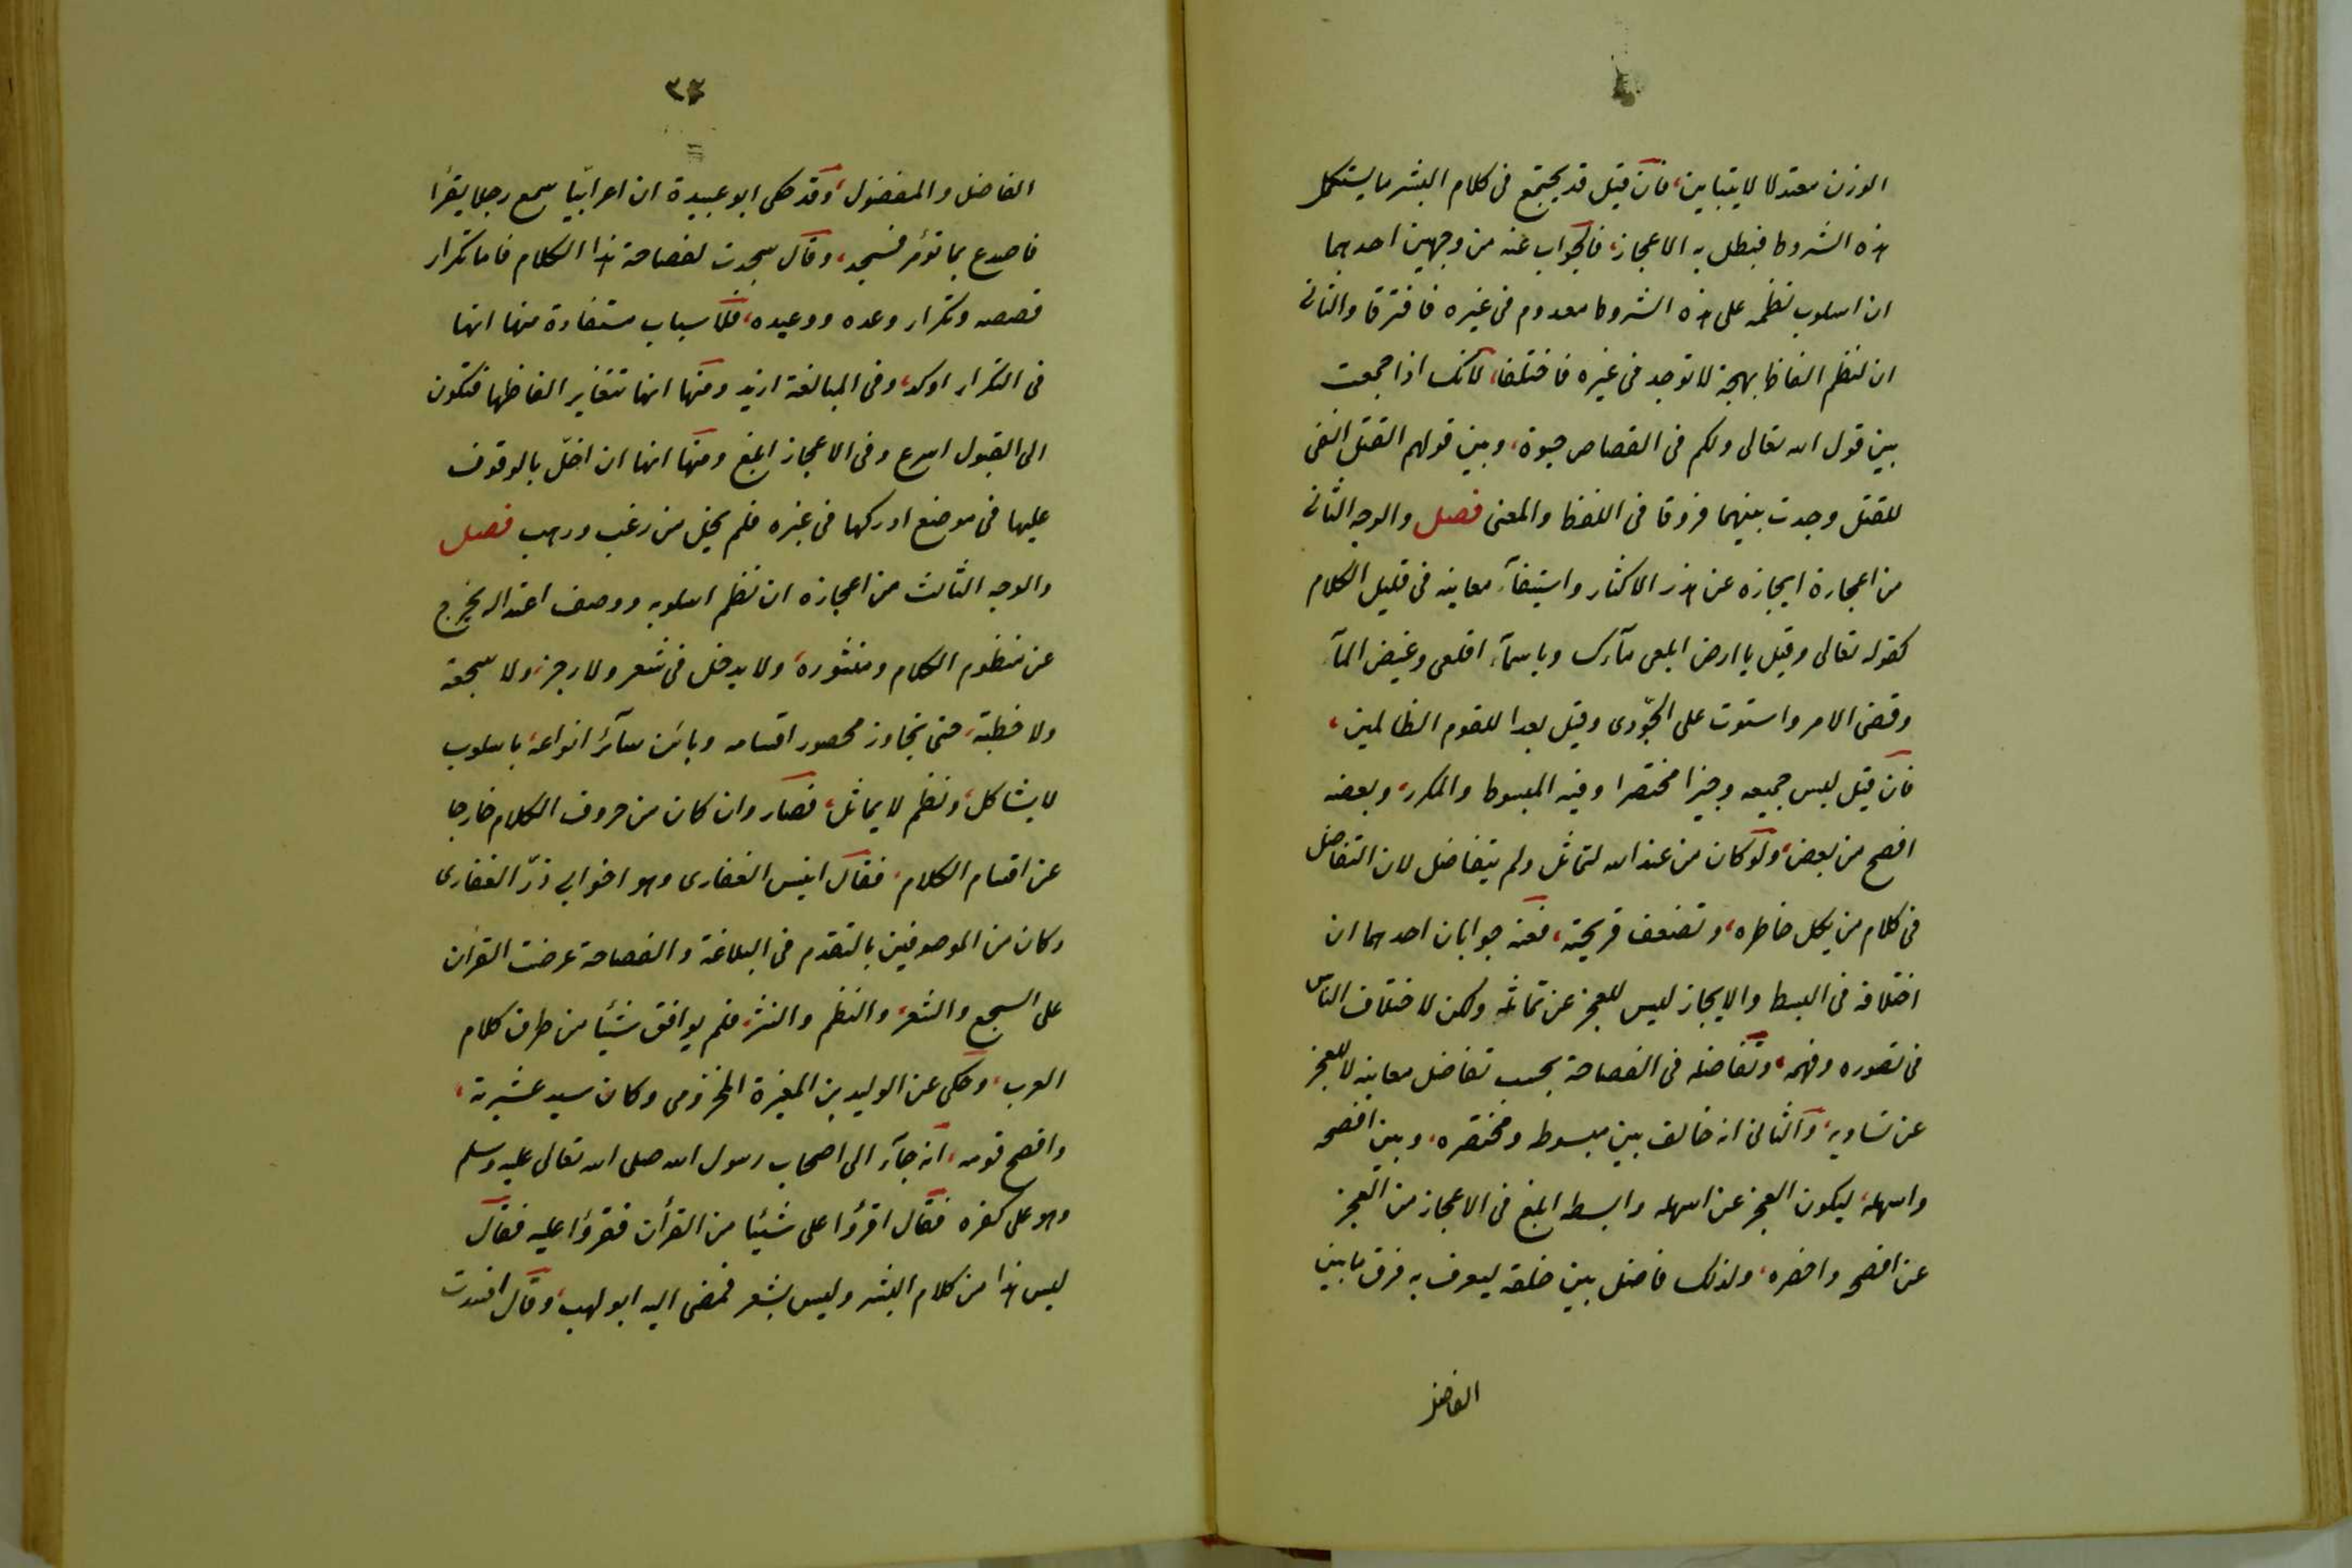 الوزن معتدلا لا يتباين، فان قيل قد يجتمع فى كلام البشر ما يستكمل
هذه الشروط فيبطل به الاعجاز، فالجواب عنه من وجهين احدهما
ان اسلوب نظمه على هذه الشروط معدوم فى غيره فافترقا والثانى
ان لنظم الفاظ بهجة لا توجد فى غيره فاختلفا، لانك اذا جمعت
بين قول الله تعالى ولكم فى القصاص حيوة، وبين قولهم القتل انفى
للقتل وجدت بينهما فروقا فى اللفظ والمعنى فصل والوجه الثانى
من اعجازة ايجازه عن هذر الاكثار واستيفآء معانيه فى قليل الكلام
كقوله تعالى وقيل يا ارض ابلعى مآءك وياسمآء اقلعى وغيض المآء
وقضى الامر واستوت على الجودّى وقيل بعدا للقوم الظالمين،
فان قيل ليس جميعه وجيزا مختصرا وفيه المبسوط والمكرر، وبعضه
افصح من بعض، ولو كان من عند الله لتماثل ولم يتفاضل لان التفاضل
فى كلام من يكل خاطره، وتضعف قريحته، فعنه جوابان احدهما ان
اختلافه فى البسط والايجاز ليس للعجز عن تماثله ولكن لاختلاف الناس
فى تصوره وفهمه، وتفاضله فى الفصاحة بحسب تفاضل معانيه لا للعجز
عن تساويه، والثانى انه خالف بين مبسوطه ومختصره، وبين افصحه
واسهله، ليكون العجز عن اسهله وابسطه ابلغ فى الاعجاز من العجز
عن افصحه واخصره، ولذلك فاضل بين خلقه ليعرف به فرق ما بين
الفاضل
٣٣
الفاضل والمفضول، وقد حكى ابو عبيدة ان اعرابيّا سمع رجلا يقرأ
فاصدع بما تؤمر فسجد، وقال سجدت لفصاحة هذا الكلام فاما تكرار
قصصه وتكرار وعده ووعيده، فلاسباب مستفادة منها انها
فى التكرار اوكد، وفى المبالغة ازيد ومنها انها تتغاير الفاظها فتكون
الى القبول اسرع وفى الاعجاز ابلغ ومنها انها ان اخلّ بالوقوف
عليها فى موضع ادركها فى غيره فلم يخل من رغب ورهب فصل
والوجه الثالث من اعجازه ان نظم اسلوبه ووصف اعتداله يخرج
عن منظوم الكلام ومنثوره، ولا يدخل فى شعر ولا رجز، ولا سجعة
ولا خطبة، حتى تجاوز محصور اقسامه وباين سآئر انواعه، باسلوب
لا يشاكل، ونظم لا يماثل، فصار وان كان من حروف الكلام خارجا
عن اقسام الكلام، فقال انيس الغفارى وهو اخو ابى ذرّ الغفارى
وكان من الموصوفين بالتقدم فى البلاغة والفصاحة عرضت القرأن
على السجع والشعر، والنظم والنثر، فلم يوافق شيئا من طرق كلام
العرب، وحكى عن الوليد بن المغيرة المخزومى وكان سيد عشيرته،
وافصح قومه، انه جآء الى اصحاب رسول الله صلى الله تعالى عليه وسلم
وهو على كفره فقال اقرؤا على شيئا من القرأن فقرؤا عليه فقال
ليس هذا من كلام البشر وليس بشعر فمضى اليه ابو لهب، وقال افسدت